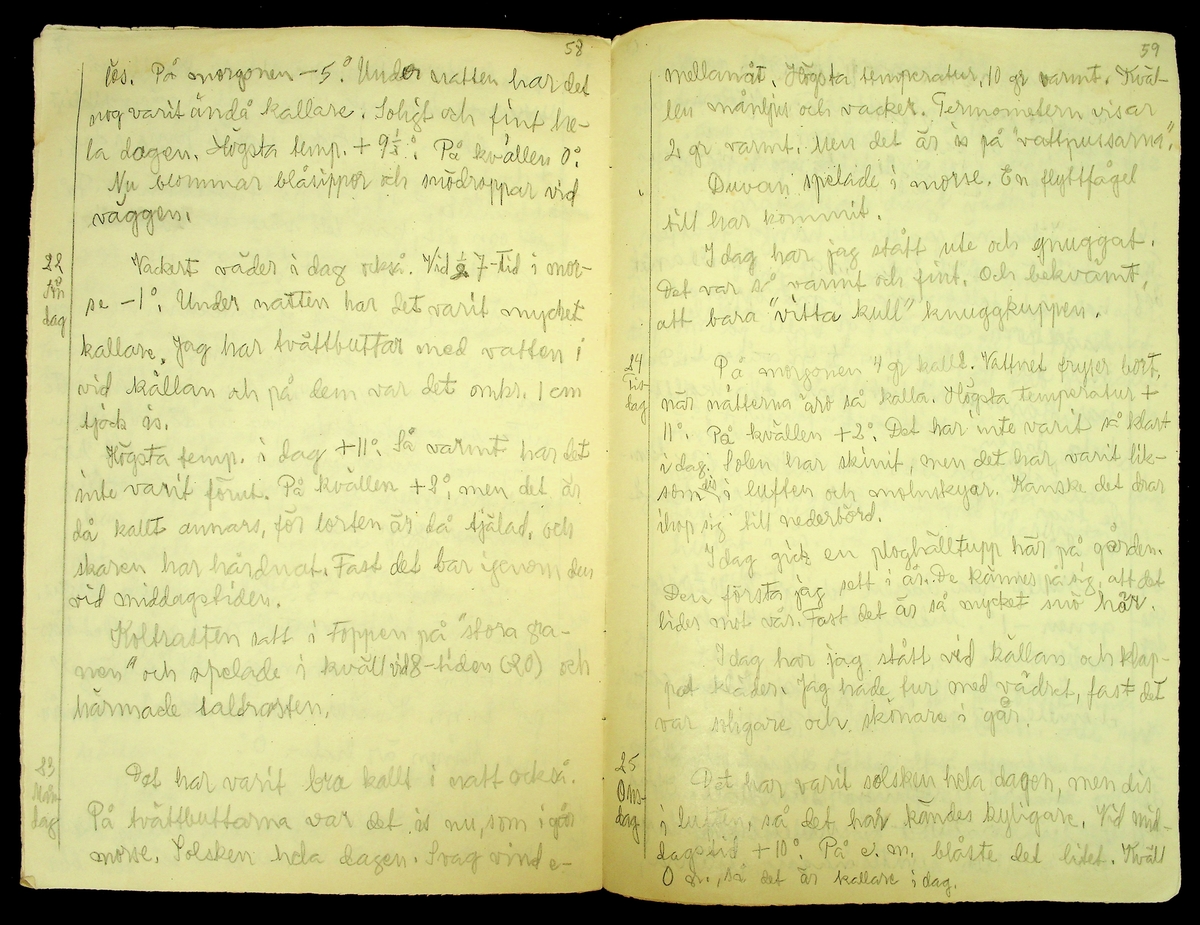 58
is. På morgonen -5°. Under natten har det
nog varit ändå kallare. Soligt och fint he-
la dagen. Högsta temp. + 9½°. På kvällen 0°.
Nu blommar blåsippor och snödroppar vid
väggen.
22
Sön
dag
Vackert väder i dag också. Vid ½ 7-tid i mor-
se -1°. Under natten har det varit mycket
kallare. Jag har tvättbuttar med vatten i
vid källan och på dem var det omkr. 1 cm
tjock is.
Högsta temp. i dag +11°. Så varmt har det
inte varit förut. På kvällen +2°, men det är
då kallt annars, för lorten är då tjälad, och
skaren har hårdnat. Fast det bar igenom den
vid middagstiden.
Koltrasten satt i toppen på "stora gra-
nen" och spelade i kväll vid 8-tiden (20) och
härmade taltrasten.
23
Mån-
dag
Det har varit bra kallt i natt också.
På tvättbuttarna var det is nu, som i går
morse. Solsken hela dagen. Svag vind e-
59
mellanåt. Högsta temperatur, 10 gr varmt. Kväl-
len månljus och vacker. Termometern visar
2 gr varmt. Men det är is på "vattpussarna".
Duvan spelade i morse. En flyttfågel
till har kommit.
I dag har jag stått ute och gnuggat.
Det var så varmt och fint. Och bekvämt,
att bara "vitta kull" knuggkuppen.
24
Tis-
dag
På morgonen 4 gr kallt. Vattnet fryser bort,
när nätterna äro så kalla. Högsta temperatur +
11°. På kvällen +2°. Det har inte varit så klart
i dag. Solen har skinit, men det har varit lik-
som dis i luften och molnskyar. Kanske det drar
ihop sig till nederbörd.
I dag gick en ploghälltupp här på gården.
Den första jag sett i år. De kännes på sig, att det
lides mot vår. Fast det är så mycket snö här.
I dag har jag stått vid källan och klap-
pat kläder. Jag hade tur med vädret, fast det
var soligare och skönare i går.
25
Ons-
dag
Det har varit solsken hela dagen, men dis
i luften, så det har kändes kyligare. Vid mid-
dagstid +10°. På e. m. blåste det litet. Kväll
0 gr., så det är kallare i dag.